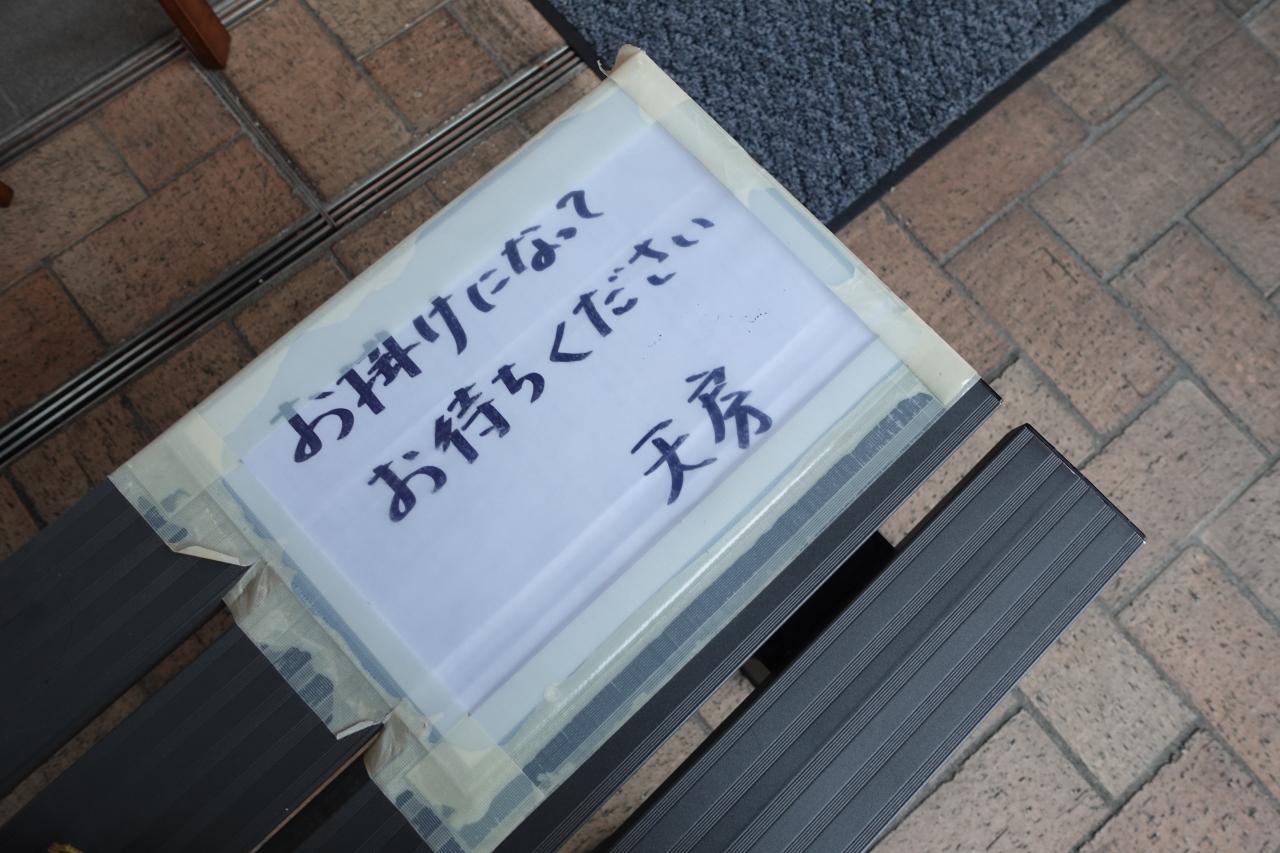 お掛けになって
お待ちください
天房